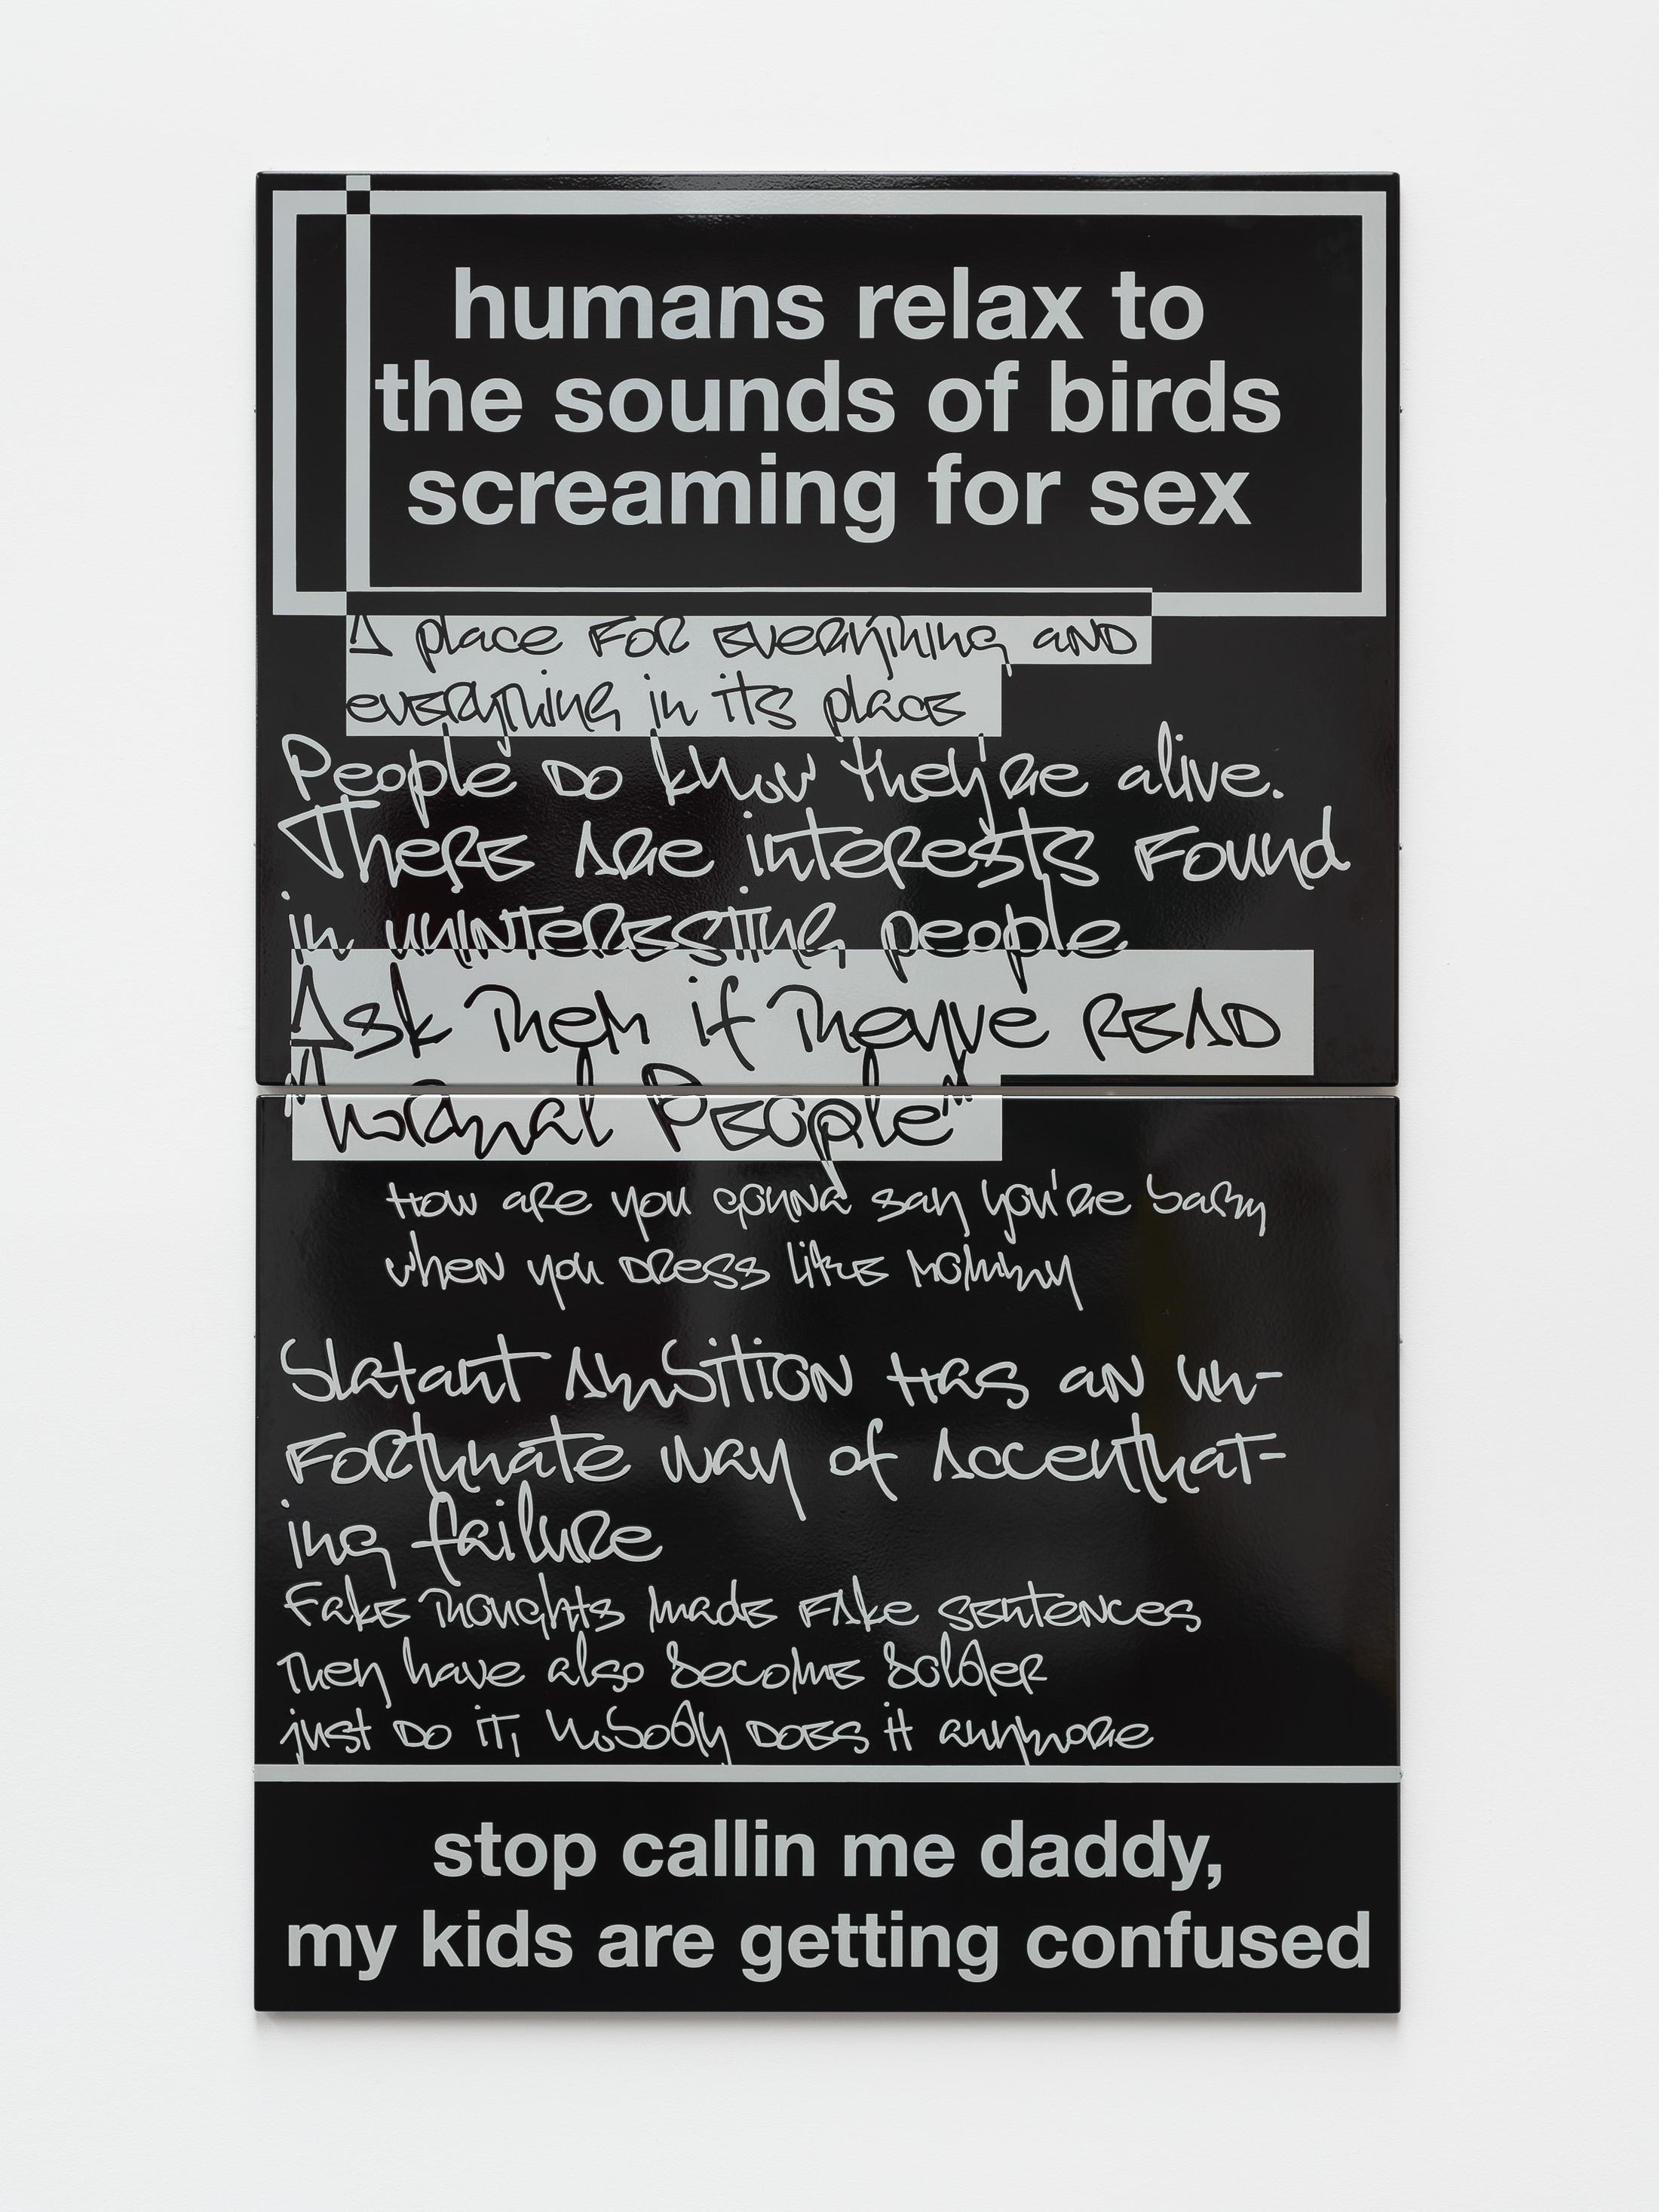 humans relax to
the sounds of birds
screaming for sex
A place FOR EVerything AND
everything in its place
People DO know they're alive.
There Are interests Found
in UNINTERESTING people
Ask Them if They've READ
"Normal People"
How are you gonna say you're baby
when you Dress like Mommy
blatant Ambition Has an un-
Fortunate way of Accentuat-
ing failure
Fake Thoughts made Fake sentences
They have also become bolder
just DO iT, Nobody DOES it anymore
stop callin me daddy,
my kids are getting confused